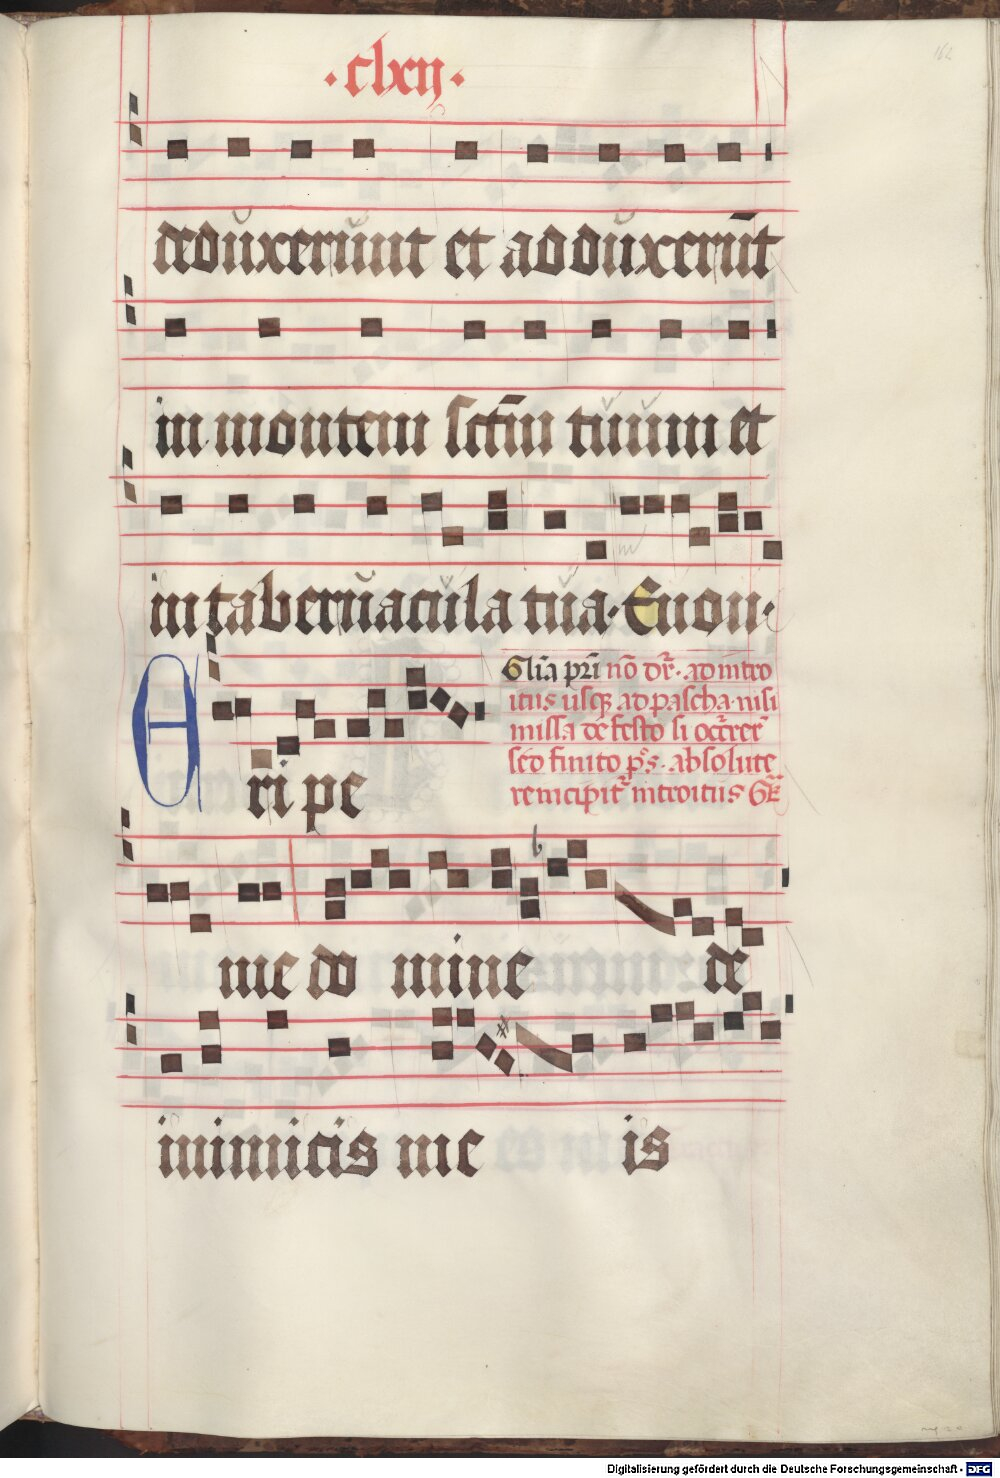 ·clxij·
162
deduxerunt et adduxerūt
in montem sctm̄ tuum et
in tabernacula tua·Euou·
Gl̄ia pr̄i nō dr̄·ad intro
itus usq ad pascha·nisi
missa de festo si
sed finito ps·absolute
reincipit introitus
E ri pe
me do mine de
inimicis me is
Digitalisierung gefördert durch die Deutsche Forschungsgemeinschaft - DFG